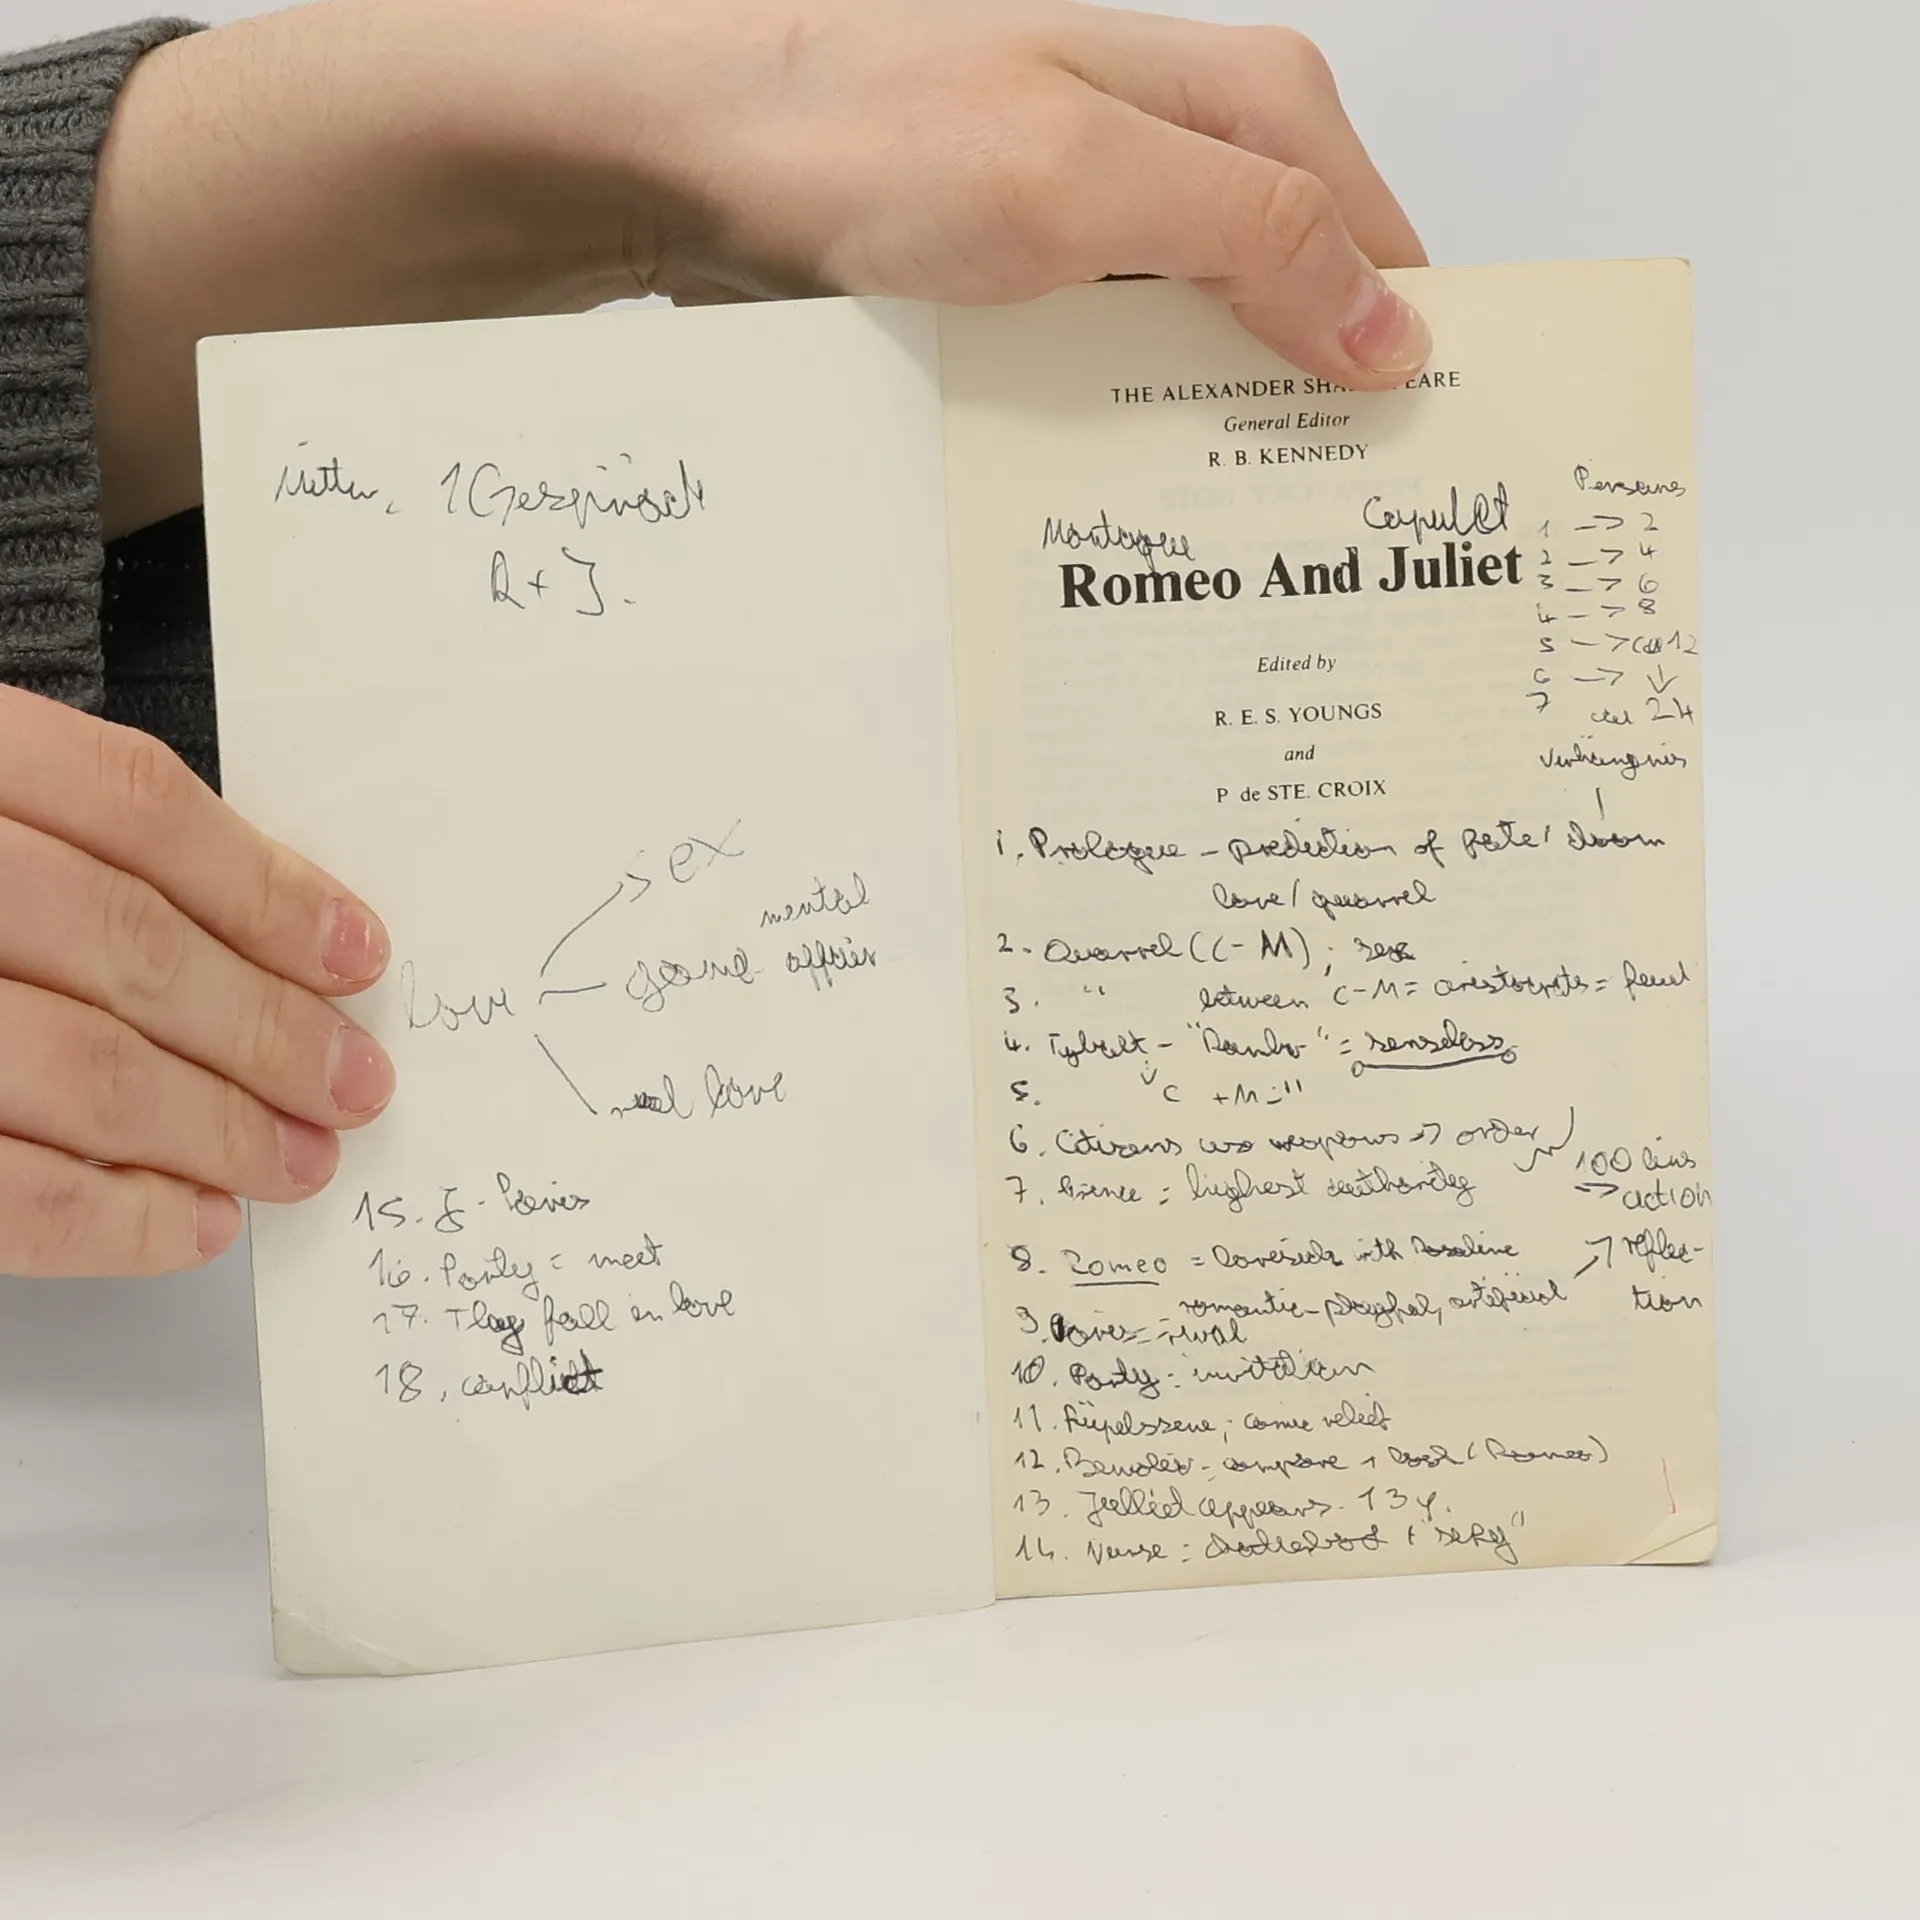 1 Gespräch
R + J.
sex
love — game mental affair
real love
15. J. - Paris
16. Party = meet
17. They fall in love
18. conflict
THE ALEXANDER SHA EARE
General Editor
R. B. KENNEDY
Montague Capulet
Romeo And Juliet
Persons
1 -> 2
2 -> 4
3 -> 6
4 -> 8
5 -> 12
6 ->
7 24
Edited by
R. E. S. YOUNGS
and
P de STE. CROIX
Verhängnis
1. Prologue - prediction of fate / doom
love / quarrel
2. Quarrel (C - M) ; sex
3. " between C-M = aristocrats = feud
4. Tybalt - "Rambo" = senseless
5. C + M = "
6. Citizens weapons => order
7. Prince = highest authority
100 lines
=> action
8. Romeo = lovesick with Rosaline
romantic - playful, artificial
-> reflec-
tion
9. Paris = rival
10. Party = invitation
11. Rüpelszene ; comic relief
12. Benvolio - compare + look (Romeo)
13. Julliet appears - 13 y.
14. Nurse = + "sexy"